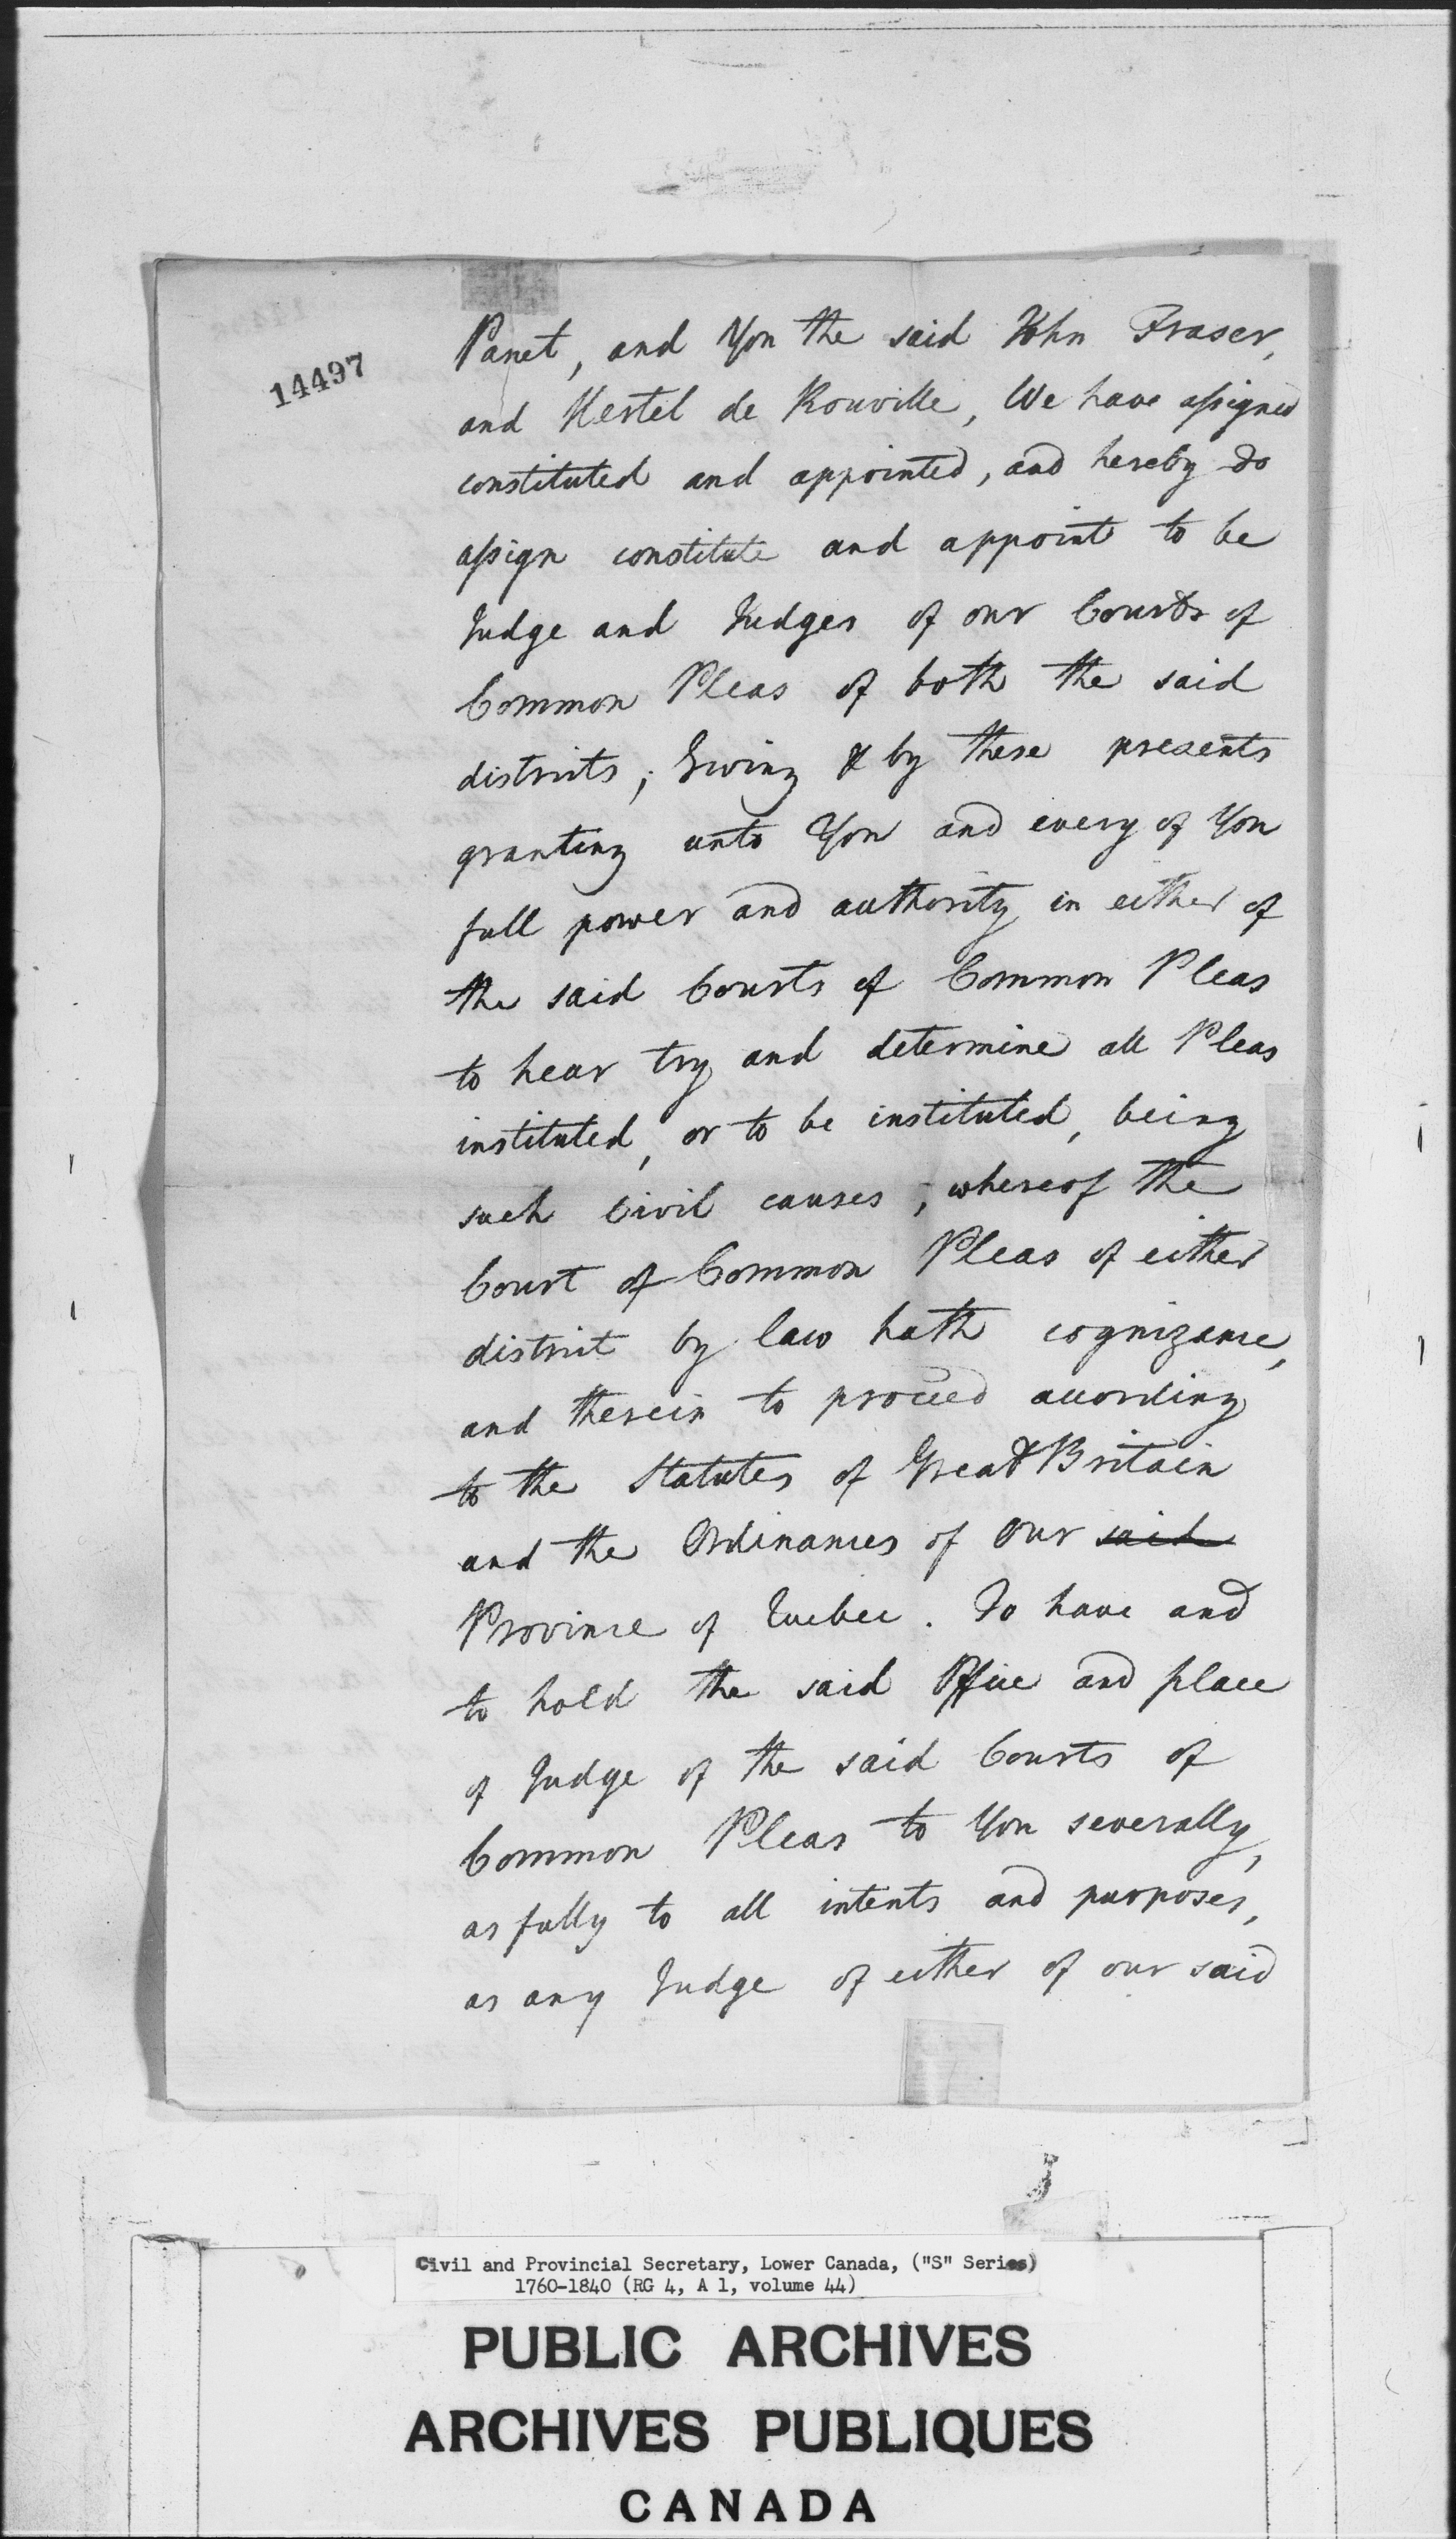 14497
Panet, and You the said John Fraser,
and Hertel de Rouville, We have assigned
constituted and appointed, and hereby do
assign constitute and appoint to be
Judge and Judges of our Courts of
Common Pleas of both the said
districts; Giving & by these presents
granting unto You and every of You
full power and authority in either of
the said Courts of Common Pleas
to hear try and determine all Pleas
instituted, or to be instituted, being
such Civil causes, whereof the
Court of Common Pleas of either
district by law hath cognizance,
and therein to proceed according
to the Statutes of Great Britain
and the Ordinances of our said
Province of Quebec. To have and
to hold the said Office and place
of Judge of the said Courts of
Common Pleas to You severally,
as fully to all intents and purposes,
as any Judge of either of our said
Civil and Provincial Secretary, Lower Canada, ("S" Series)
1760-1840 (RG 4, A 1, volume 44)
PUBLIC ARCHIVES
ARCHIVES PUBLIQUES
CANADA